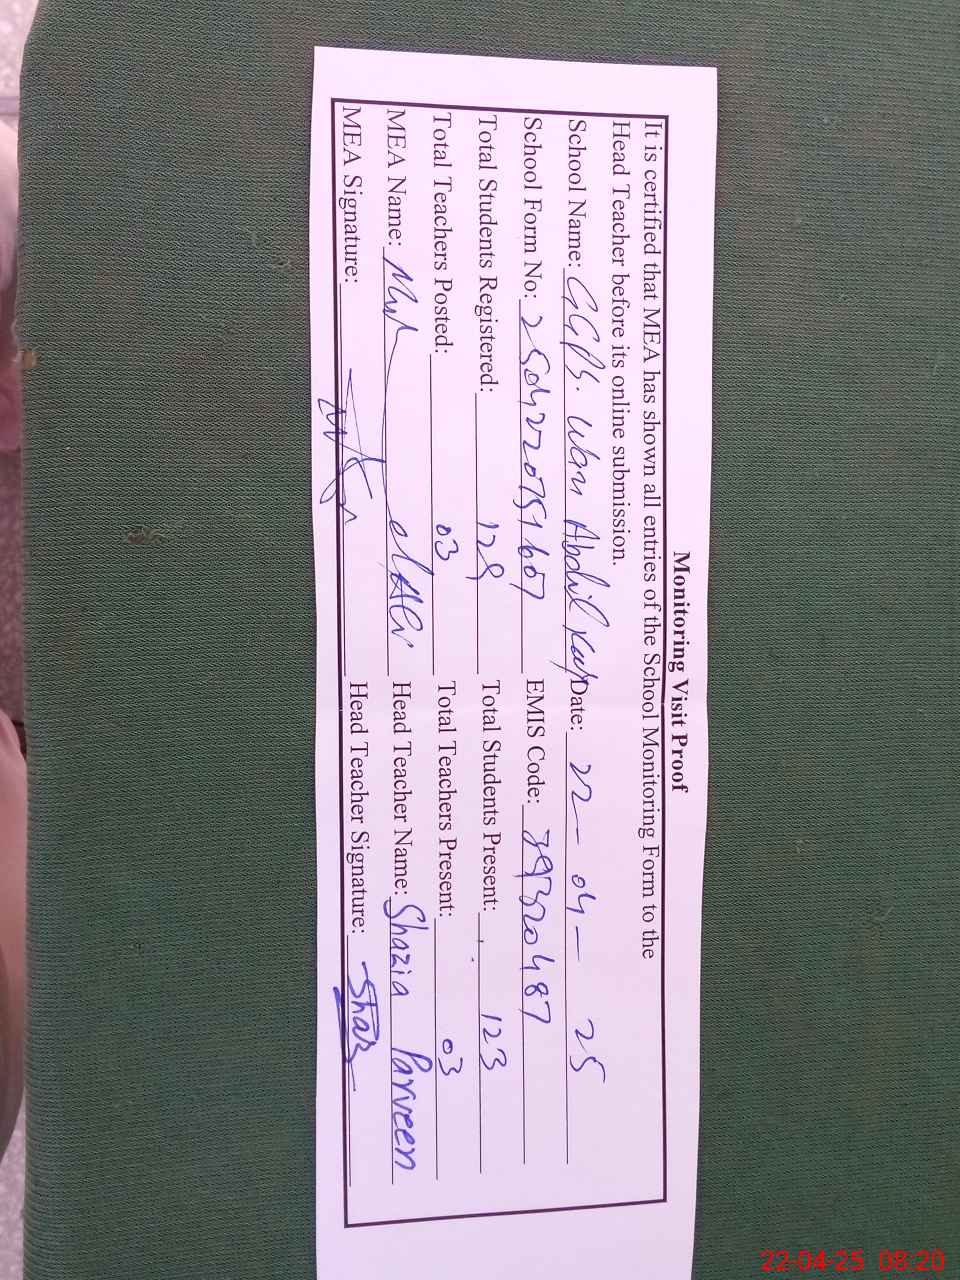 Monitoring Visit Proof
It is certified that MEA has shown all entries of the School Monitoring Form to the
Head Teacher before its online submission.
School Name: GGPS. Abdul Date: 22-04-25
School Form No: EMIS Code: 39320487
Total Students Registered: 129 Total Students Present: 123
Total Teachers Posted: 03 Total Teachers Present: 03
MEA Name: Head Teacher Name: Shazia Parveen
MEA Signature: Head Teacher Signature: Shaz
22-04-25 08:20